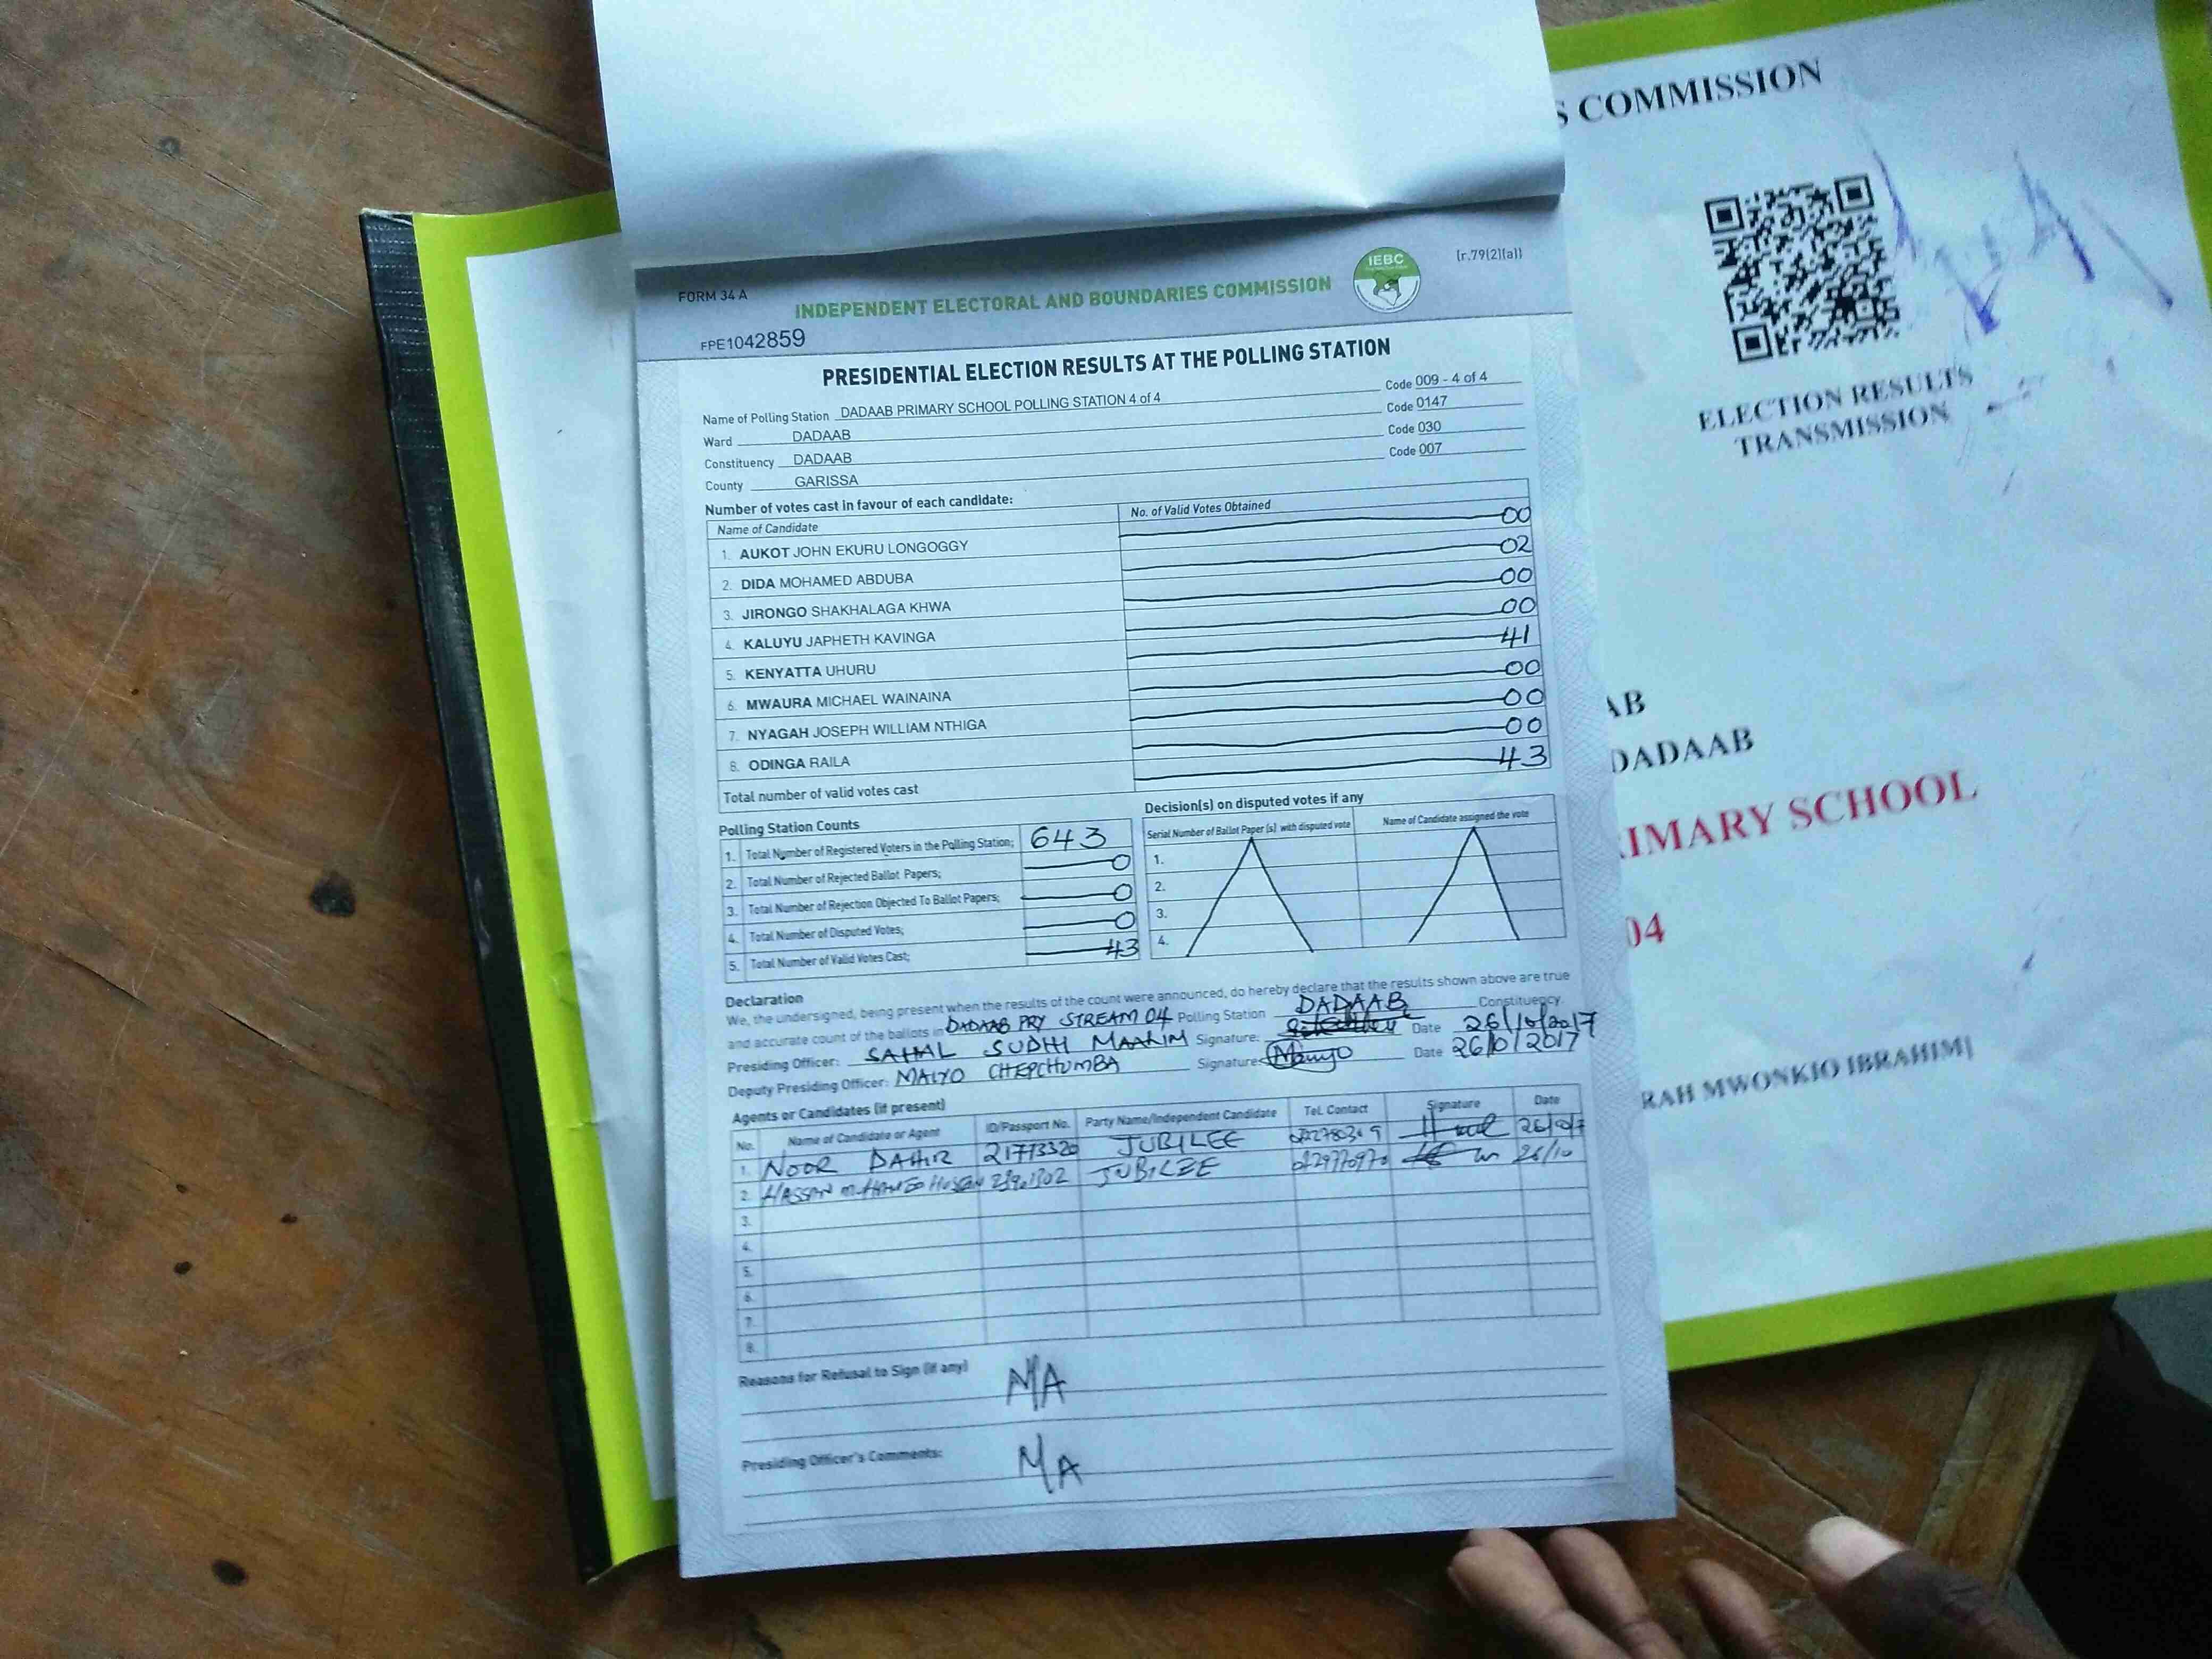 FORM 34 A
INDEPENDENT ELECTORAL AND BOUNDARIES COMMISSION
IEBC
(r.79(2)(a))
FPE1042859
PRESIDENTIAL ELECTION RESULTS AT THE POLLING STATION
Name of Polling Station DADAAB PRIMARY SCHOOL POLLING STATION 4 of 4 Code 009 - 4 of 4
Ward DADAAB Code 0147
Constituency DADAAB Code 030
County GARISSA Code 007
Number of votes cast in favour of each candidate:
Name of Candidate No. of Valid Votes Obtained
1. AUKOT JOHN EKURU LONGOGGY 00
2. DIDA MOHAMED ABDUBA 02
3. JIRONGO SHAKHALAGA KHWA 00
4. KALUYU JAPHETH KAVINGA 00
5. KENYATTA UHURU 41
6. MWAURA MICHAEL WAINAINA 00
7. NYAGAH JOSEPH WILLIAM NTHIGA 00
8. ODINGA RAILA 00
Total number of valid votes cast 43
Polling Station Counts
1. Total Number of Registered Voters in the Polling Station; 643
2. Total Number of Rejected Ballot Papers; 0
3. Total Number of Rejection Objected To Ballot Papers; 0
4. Total Number of Disputed Votes; 0
5. Total Number of Valid Votes Cast; 43
Decision(s) on disputed votes if any
Serial Number of Ballot Paper (s) with disputed vote Name of Candidate assigned the vote
1.
2.
3.
4.
Declaration
We, the undersigned, being present when the results of the count were announced, do hereby declare that the results shown above are true
and accurate count of the ballots in DADAAB PRY STREAM 04 Polling Station DADAAB Constituency.
Presiding Officer: SAHAL SUDHI MAALIM Signature: Date 26/10/2017
Deputy Presiding Officer: MALYO CHEPCHUMBA Signature: Date 26/0/2017
Agents or Candidates (if present)
No. Name of Candidate or Agent ID/Passport No. Party Name/Independent Candidate Tel. Contact Signature Date
1. NOOR DAHIR 21773320 JUBILEE
2. HASSAN JUBILEE 26/10
3.
4.
5.
6.
7.
8.
Reasons for Refusal to Sign (if any) N/A
Presiding Officer's Comments: N/A
S COMMISSION
ELECTION RESULTS
TRANSMISSION
AB
DADAAB
RIMARY SCHOOL
04
RAH MWONKIO IBRAHIM